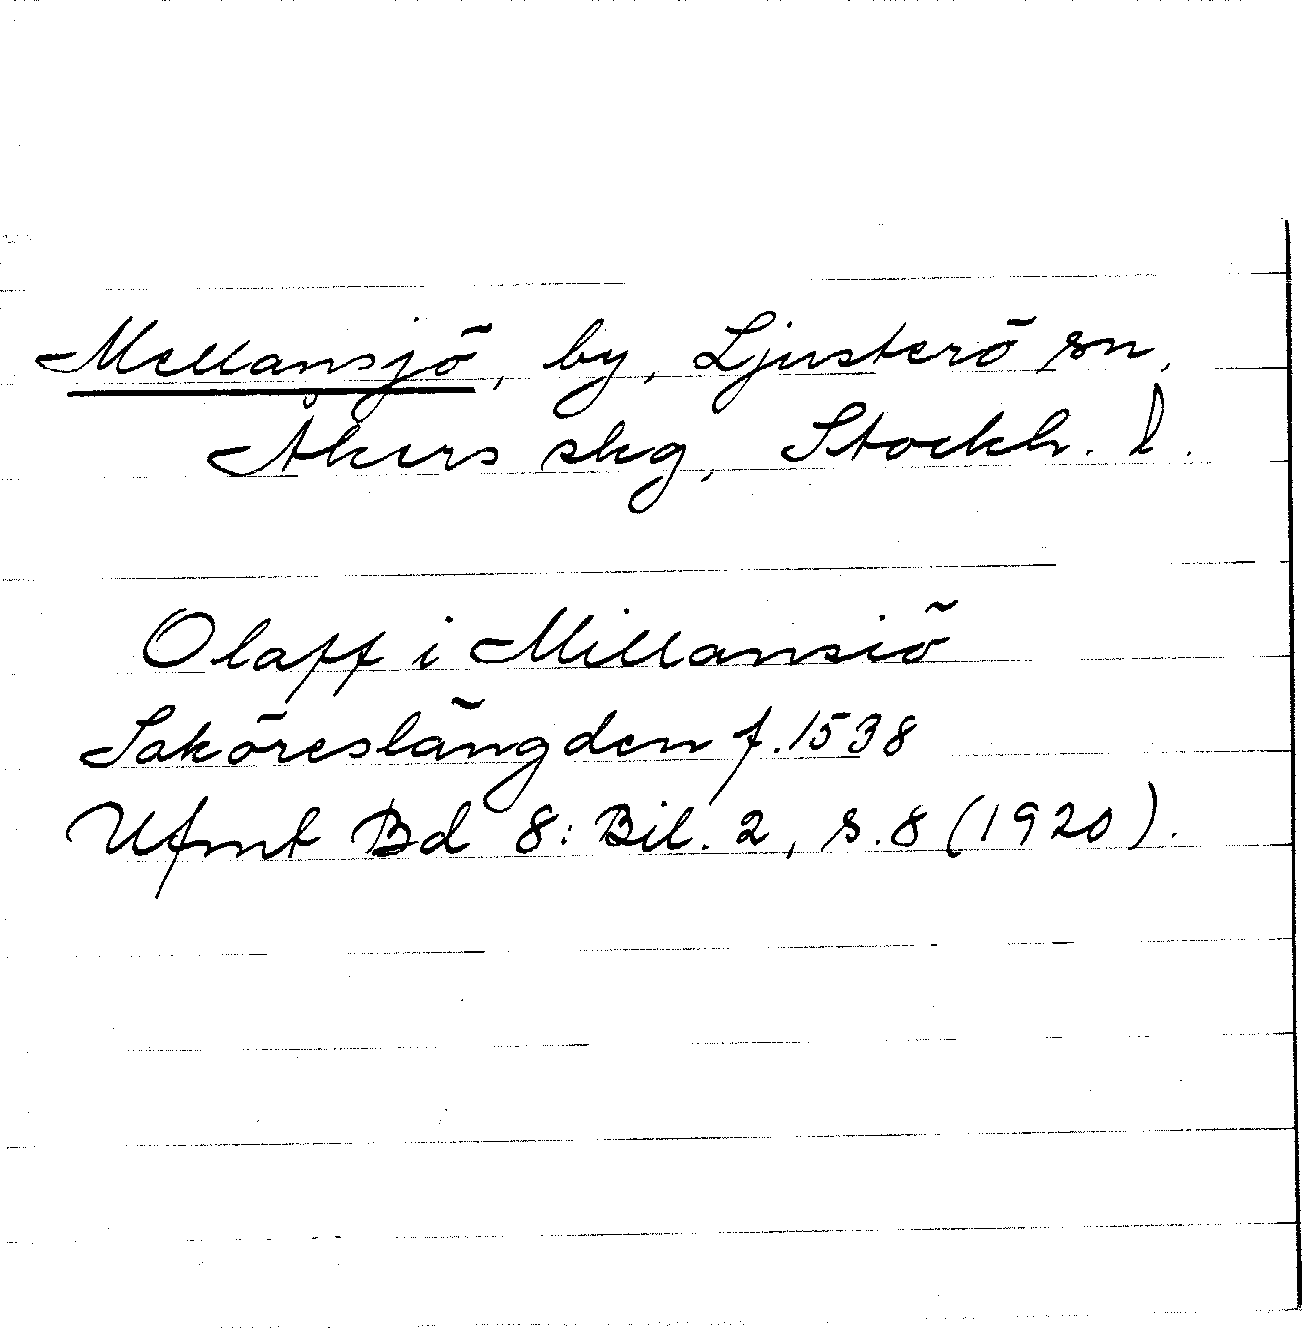 Mellansjö, by, Ljusterö sn,
Åkers skg, Stockh. l.
Olaff i Millansiö
Saköreslängden f. 1538
Ufmt Bd 8: Bil. 2, s. 8 (1920).